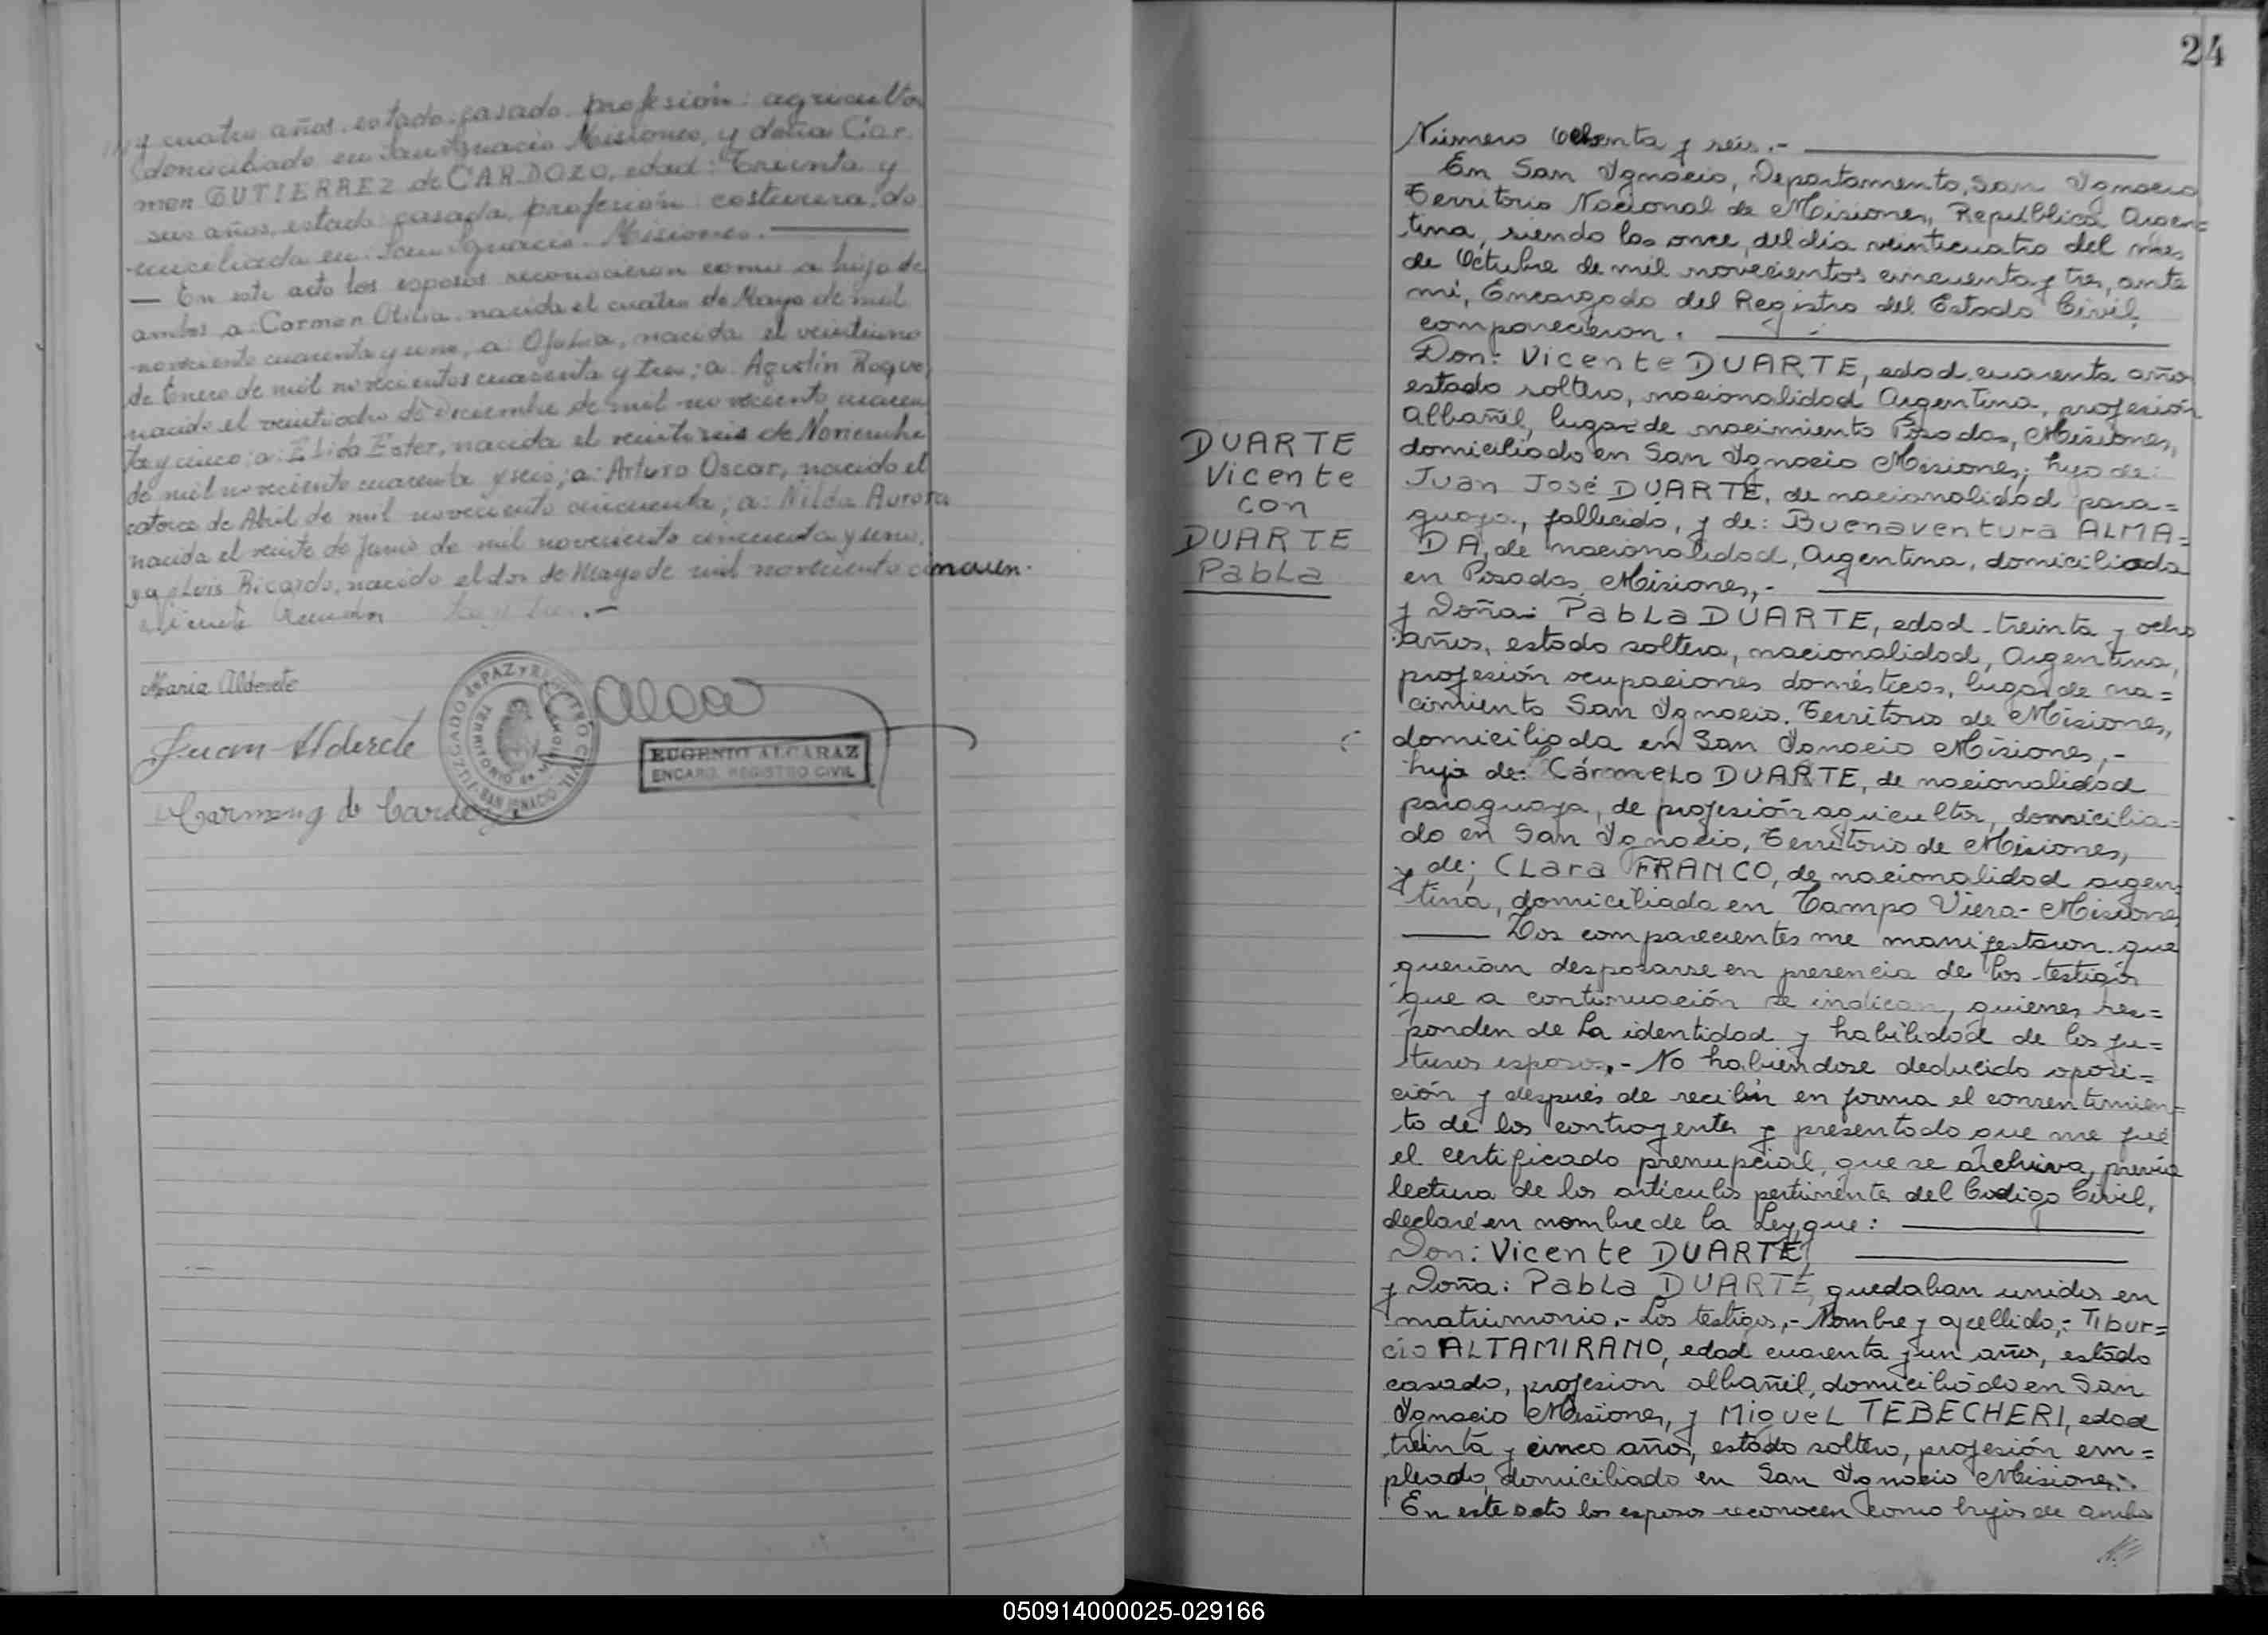 y cuatro años, estado casado, profesión: agricultor
domiciliado en San Ignacio Misiones, y doña Car
men GUTIERREZ de CARDOZO, edad: Treinta y
seis años, estado casada, profesión costurera, do
miciliada en San Ignacio. Misiones.
— En este acto los esposos reconocieron como a hijo de
ambos a: Carmen Otilia, nacida el cuatro de Mayo de mil
noveciento cuarenta y uno, a: Ofelia, nacida el veintiuno
de Enero de mil novecientos cuarenta y tres; a: Agustín Roque,
nacido el veintiocho de Deciembre de mil noveciento cuaren
ta y cinco; a: Elida Ester, nacida el veintiseis de Noviembre
de mil noveciento cuarenta y seis; a: Arturo Oscar, nacido el
catorce de Abril de mil noveciento cincuenta; a: Nilda Aurora
nacida el veinte de Junio de mil noveciento cincuenta y uno,
y a Luis Ricardo, nacido el dos de Mayo de mil noveciento cincuen.
ta y tres.-
Maria Alderete
Juan Alderete
JUZGADO de PAZ y REGISTRO CIVIL
TERRITORIO de MISIONES
SAN IGNACIO
EUGENIO ALCARAZ
ENCARG. REGISTRO CIVIL
Carmen g de Cardozo
24
Número Ochenta y seis.-
En San Ignacio, Departamento, San Ignacio
Territorio Nacional de Misiones, República Argen=
tina, siendo las once, del día veinticuatro del mes
de Octubre de mil novecientos cincuenta y tres, ante
mi, Encargado del Registro del Estado Civil,
comparecieron.
Don: Vicente DUARTE, edad cuarenta año
estado soltero, nacionalidad Argentina, profesión
Albañil, lugar de nacimiento Posadas, Misiones,
domiciliado en San Ignacio Misiones, hijo de:
Juan José DUARTE, de nacionalidad para=
guaya, fallecido, y de: Buenaventura ALMA=
DA, de nacionalidad, Argentina, domiciliada
en Posadas, Misiones,-
DUARTE
Vicente
con
DUARTE
Pabla
y Doña: Pabla DUARTE, edad treinta y ocho
años, estado soltera, nacionalidad, Argentina,
profesión ocupaciones domésticas, lugar de na=
cimiento San Ignacio. Territorio de Misiones,
domiciliada en San Ignacio Misiones,-
hija de: Cármelo DUARTE, de nacionalidad
paraguaya, de profesión agricultor, domicilia=
do en San Ignacio, Territorio de Misiones,
y de; Clara FRANCO, de nacionalidad argen=
tina, domiciliada en Campo Viera- Misiones,
Los comparecientes me manifestaron que
querían desposarse en presencia de los testigos
que a continuación se indican, quienes res=
ponden de la identidad y habilidad de los fu=
turos esposos,- No habiendose deducido oposi=
ción y después de recibir en forma el consentimien=
to de los contrayentes y presentado que me fué
el certificado prenupcial, que se archiva, previa
lectura de los artículos pertinente del Codigo Civil,
declaré en nombre de la Ley, que:
Don: Vicente DUARTE,
y Doña: Pabla DUARTE, quedaban unidos en
matrimonio.- Los testigos,- Nombre y apellido,- Tibur=
cio ALTAMIRANO, edad cuarenta y un años, estado
casado, profesion albañil, domiciliado en San
Ignacio Misiones, y Miguel TEBECHERI, edad
treinta y cinco años, estado soltero, profesión em=
pleado, domiciliado en San Ignacio Misiones.
En este acto los esposos reconocen como hijos de ambos
050914000025-029166